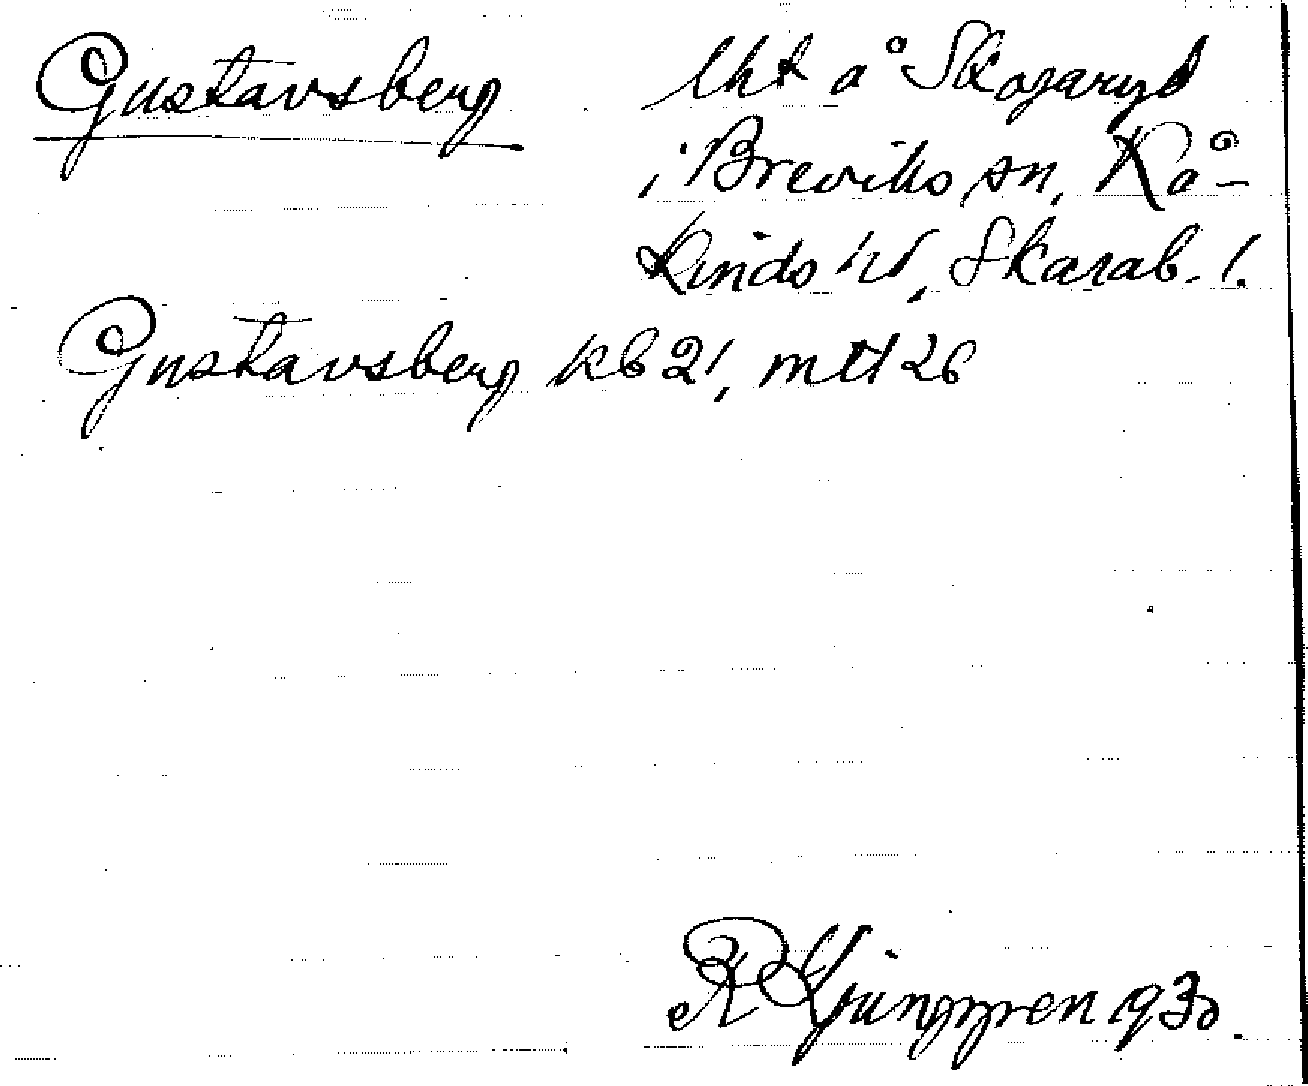 Gustavsberg
lht å Skogaryd
i Breviks sn, Kå-
kinds hd, Skarab. l.
Gustavsberg kb 21, mtl 26
R Ljunggren 1930.